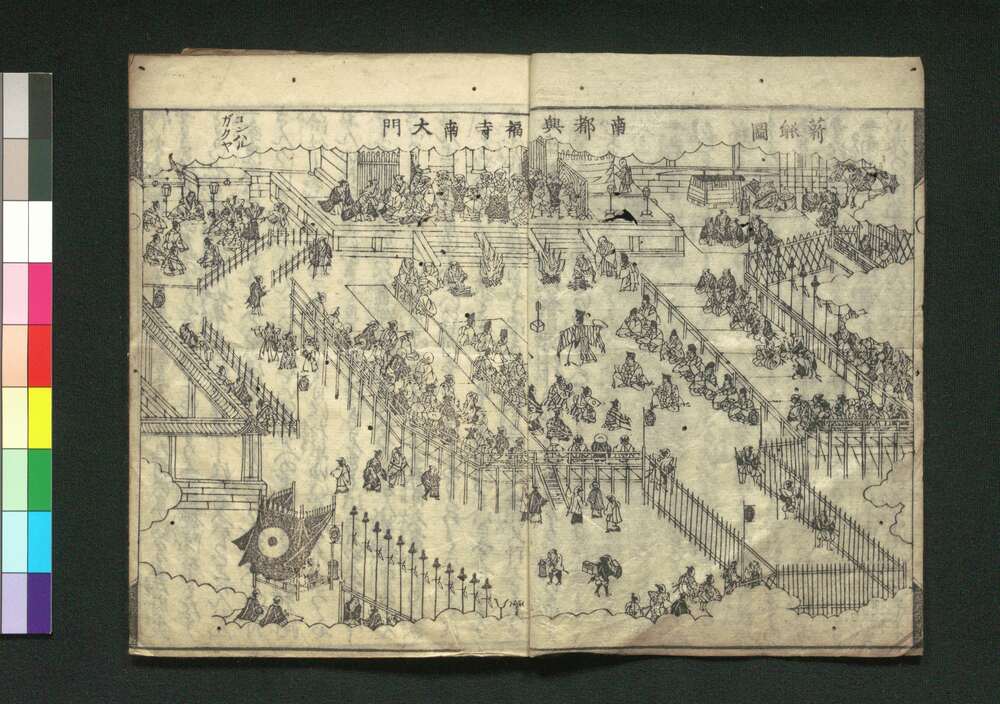 薪能圖
南都興福寺南大門
コンハル
ガクヤ